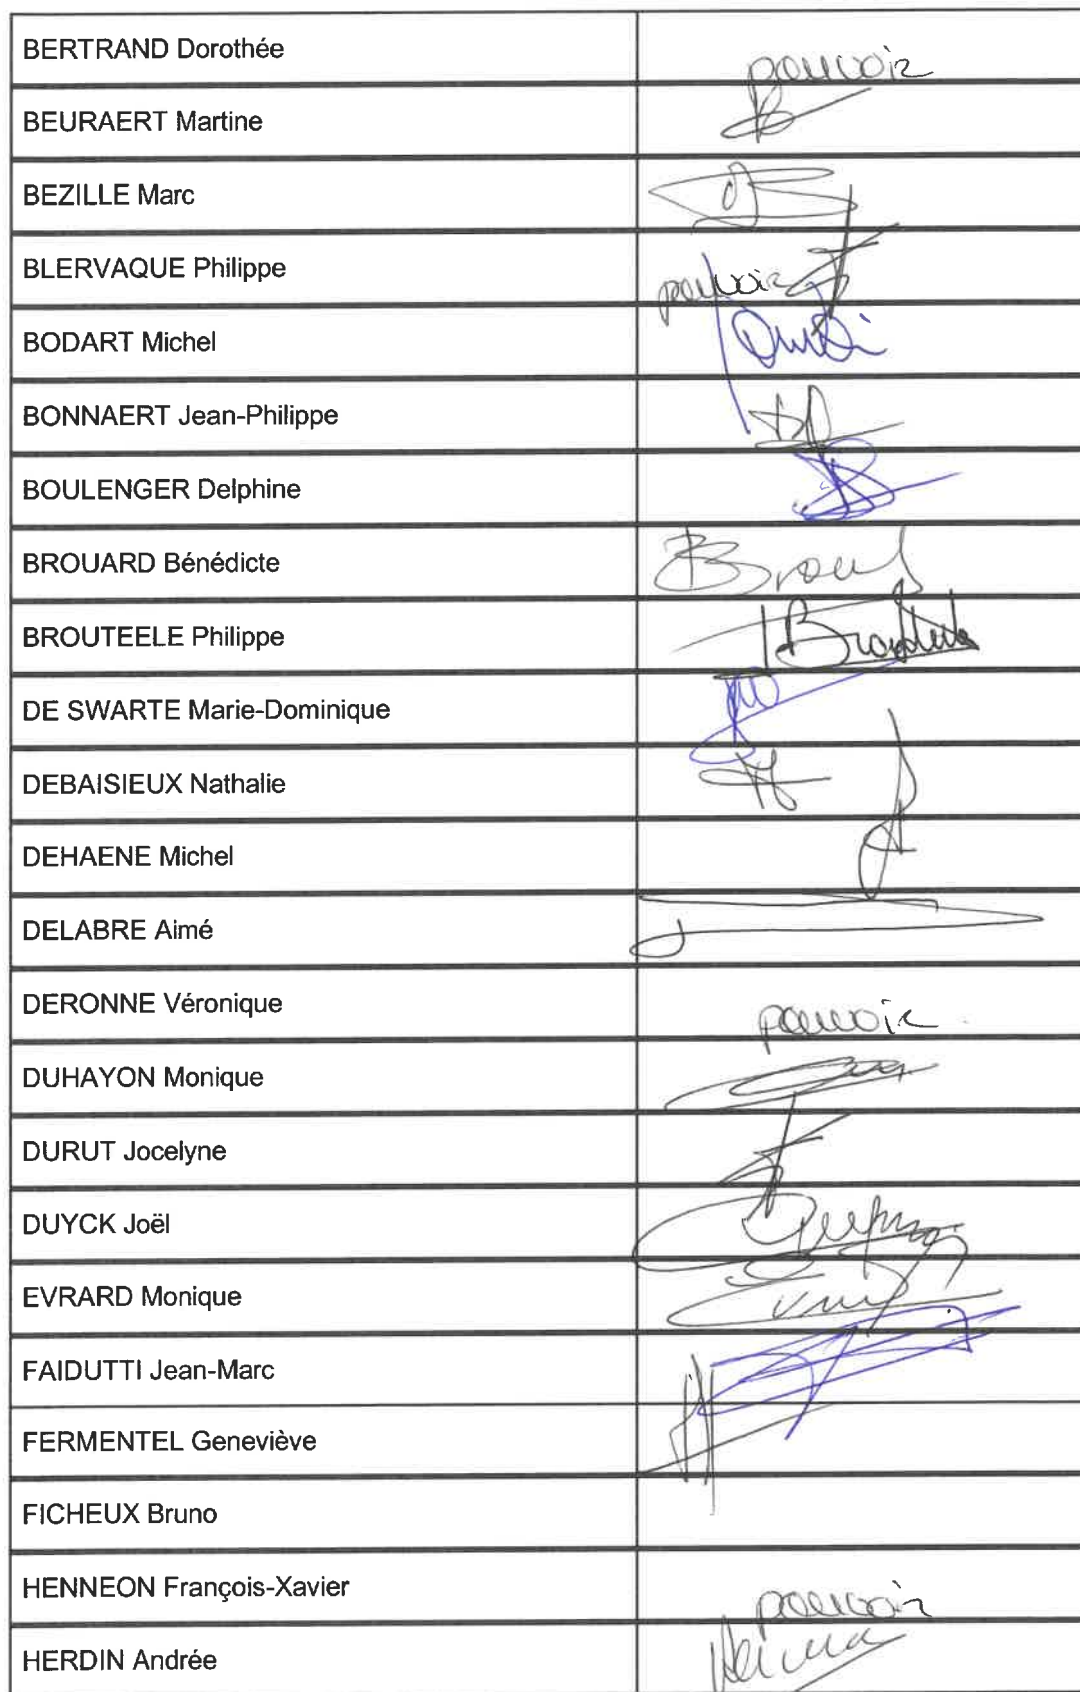 BERTRAND Dorothée
pouvoir
BEURAERT Martine
BEZILLE Marc
BLERVAQUE Philippe
pouvoir
BODART Michel
BONNAERT Jean-Philippe
BOULENGER Delphine
BROUARD Bénédicte
BROUTEELE Philippe
DE SWARTE Marie-Dominique
DEBAISIEUX Nathalie
DEHAENE Michel
DELABRE Aimé
DERONNE Véronique
pouvoir
DUHAYON Monique
DURUT Jocelyne
DUYCK Joël
EVRARD Monique
FAIDUTTI Jean-Marc
FERMENTEL Geneviève
FICHEUX Bruno
HENNEON François-Xavier
pouvoir
HERDIN Andrée